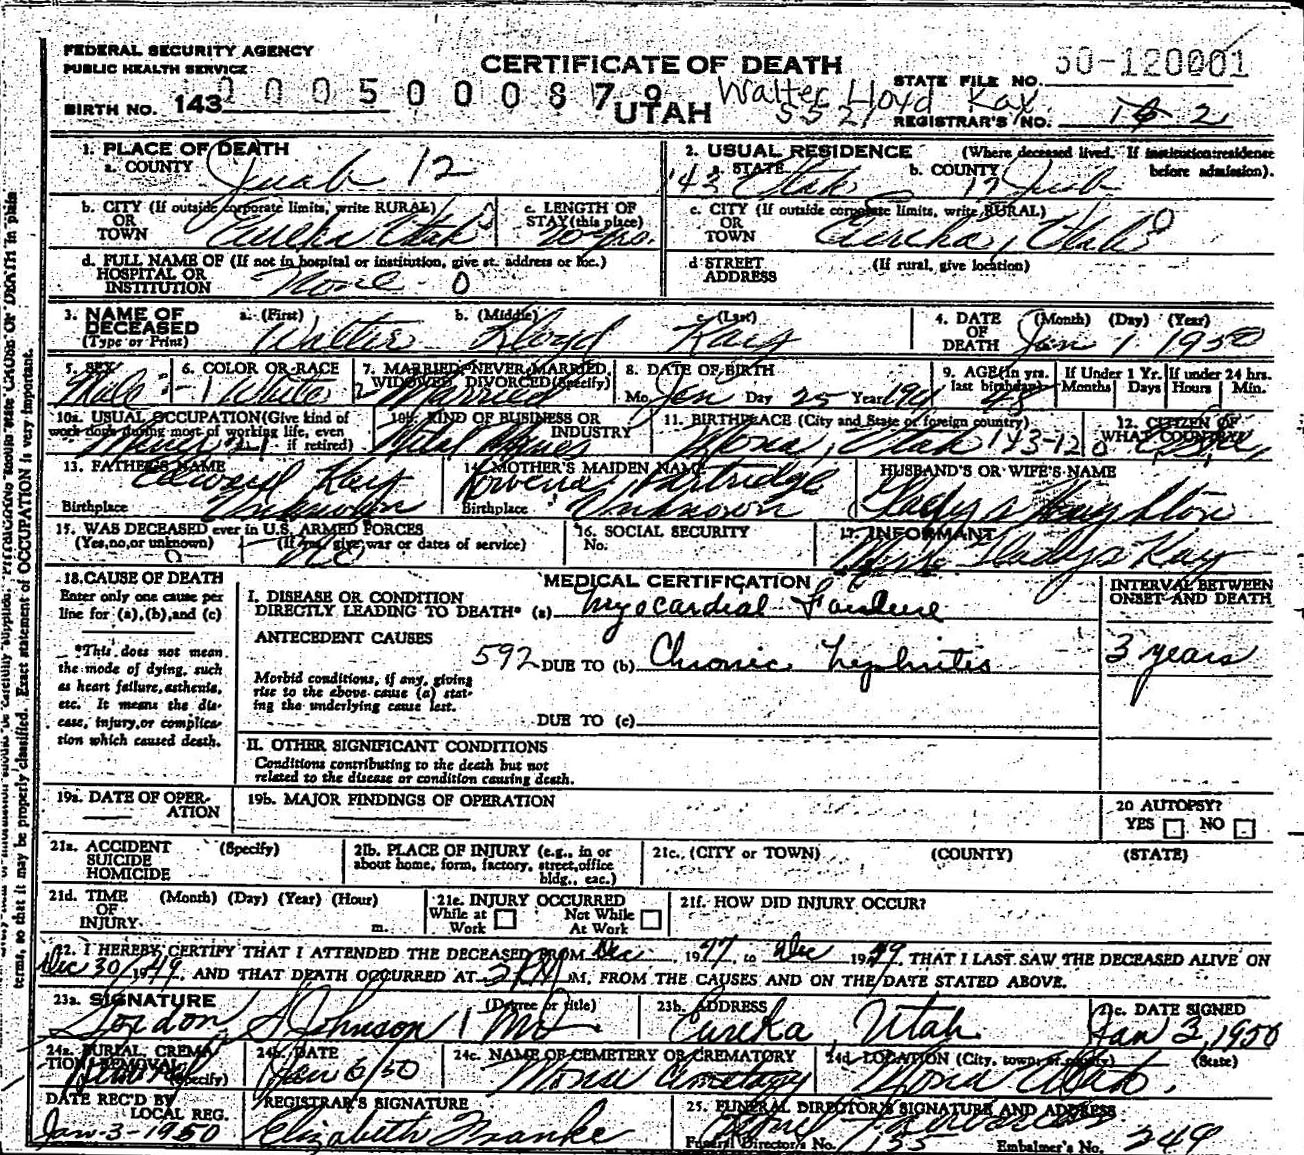 FEDERAL SECURITY AGENCY
PUBLIC HEALTH SERVICE
CERTIFICATE OF DEATH
STATE FILE NO. 50-120001
BIRTH NO. 143
0005000879
UTAH
Walter Lloyd Kay
5521
REGISTRAR'S NO. 2
1. PLACE OF DEATH
a. COUNTY Juab 12
2. USUAL RESIDENCE (Where deceased lived. If institution: residence before admission).
143 a. STATE Utah b. COUNTY 12 Juab
b. CITY (If outside corporate limits, write RURAL) OR TOWN Eureka Utah
c. LENGTH OF STAY (this place)
c. CITY (If outside corporate limits, write RURAL) OR TOWN Eureka, Utah 0
d. FULL NAME OF (If not in hospital or institution, give st. address or loc.) HOSPITAL OR INSTITUTION None - 0
d STREET ADDRESS (If rural, give location)
3. NAME OF DECEASED (Type or Print)
a. (First) Walter b. (Middle) Lloyd c. (Last) Kay
4. DATE OF DEATH (Month) (Day) (Year) Jan 1 1950
5. SEX Male - 1
6. COLOR OR RACE White
7. MARRIED, NEVER MARRIED, WIDOWED, DIVORCED (Specify) Married
8. DATE OF BIRTH Mo. Jan Day 25 Year
9. AGE (In yrs. last birthday) 48
If Under 1 Yr. Months Days
If under 24 hrs. Hours Min.
10a. USUAL OCCUPATION (Give kind of work done during most of working life, even if retired)
10b. KIND OF BUSINESS OR INDUSTRY Metal Mines
11. BIRTHPLACE (City and State or foreign country) Mona, Utah 143-120
12. CITIZEN OF WHAT COUNTRY? U.S.A.
13. FATHER'S NAME Edward Kay
Birthplace Unknown
14. MOTHER'S MAIDEN NAME Rowena Partridge
Birthplace Unknown
HUSBAND'S OR WIFE'S NAME
Gladys Houghton
15. WAS DECEASED ever in U.S. ARMED FORCES
(Yes, no, or unknown) (If yes, give war or dates of service)
0 No
16. SOCIAL SECURITY No.
17. INFORMANT
Mrs. Gladys Kay
18. CAUSE OF DEATH
Enter only one cause per line for (a), (b), and (c)
*This does not mean the mode of dying, such as heart failure, asthenia, etc. It means the disease, injury, or complication which caused death.
MEDICAL CERTIFICATION
I. DISEASE OR CONDITION DIRECTLY LEADING TO DEATH* (a) Myocardial Failure
ANTECEDENT CAUSES
592 DUE TO (b) Chronic Nephritis
Morbid conditions, if any, giving rise to the above cause (a) stating the underlying cause last.
DUE TO (c)
INTERVAL BETWEEN ONSET AND DEATH
3 years
II. OTHER SIGNIFICANT CONDITIONS
Conditions contributing to the death but not related to the disease or condition causing death.
19a. DATE OF OPERATION
19b. MAJOR FINDINGS OF OPERATION
20 AUTOPSY?
YES NO
21a. ACCIDENT SUICIDE HOMICIDE (Specify)
21b. PLACE OF INJURY (e.g., in or about home, form, factory, street, office bldg., eac.)
21c. (CITY or TOWN) (COUNTY) (STATE)
21d. TIME OF INJURY (Month) (Day) (Year) (Hour) m.
21e. INJURY OCCURRED
While at Work Not While At Work
21f. HOW DID INJURY OCCUR?
22. I HEREBY CERTIFY THAT I ATTENDED THE DECEASED FROM Dec, 1947, to Dec 1949, THAT I LAST SAW THE DECEASED ALIVE ON
Dec 30, 1949, AND THAT DEATH OCCURRED AT 2 P M. FROM THE CAUSES AND ON THE DATE STATED ABOVE.
23a. SIGNATURE (Degree or title)
Gordon S Johnson MD
23b. ADDRESS
Eureka, Utah
23c. DATE SIGNED
Jan 3, 1950
24a. BURIAL, CREMATION, REMOVAL (Specify) Removal
24b. DATE
Jan 6/50
24c. NAME OF CEMETERY OR CREMATORY
Mona Cemetary
24d. LOCATION (City, town, or county) (State)
Mona Utah.
DATE REC'D BY LOCAL REG.
Jan-3-1950
REGISTRAR'S SIGNATURE
Elizabeth Franke
25. FUNERAL DIRECTOR'S SIGNATURE AND ADDRESS
Funeral Director's No. 135 Embalmer's No. 249
terms, so that it may be properly classified. Exact statement of OCCUPATION is very important.